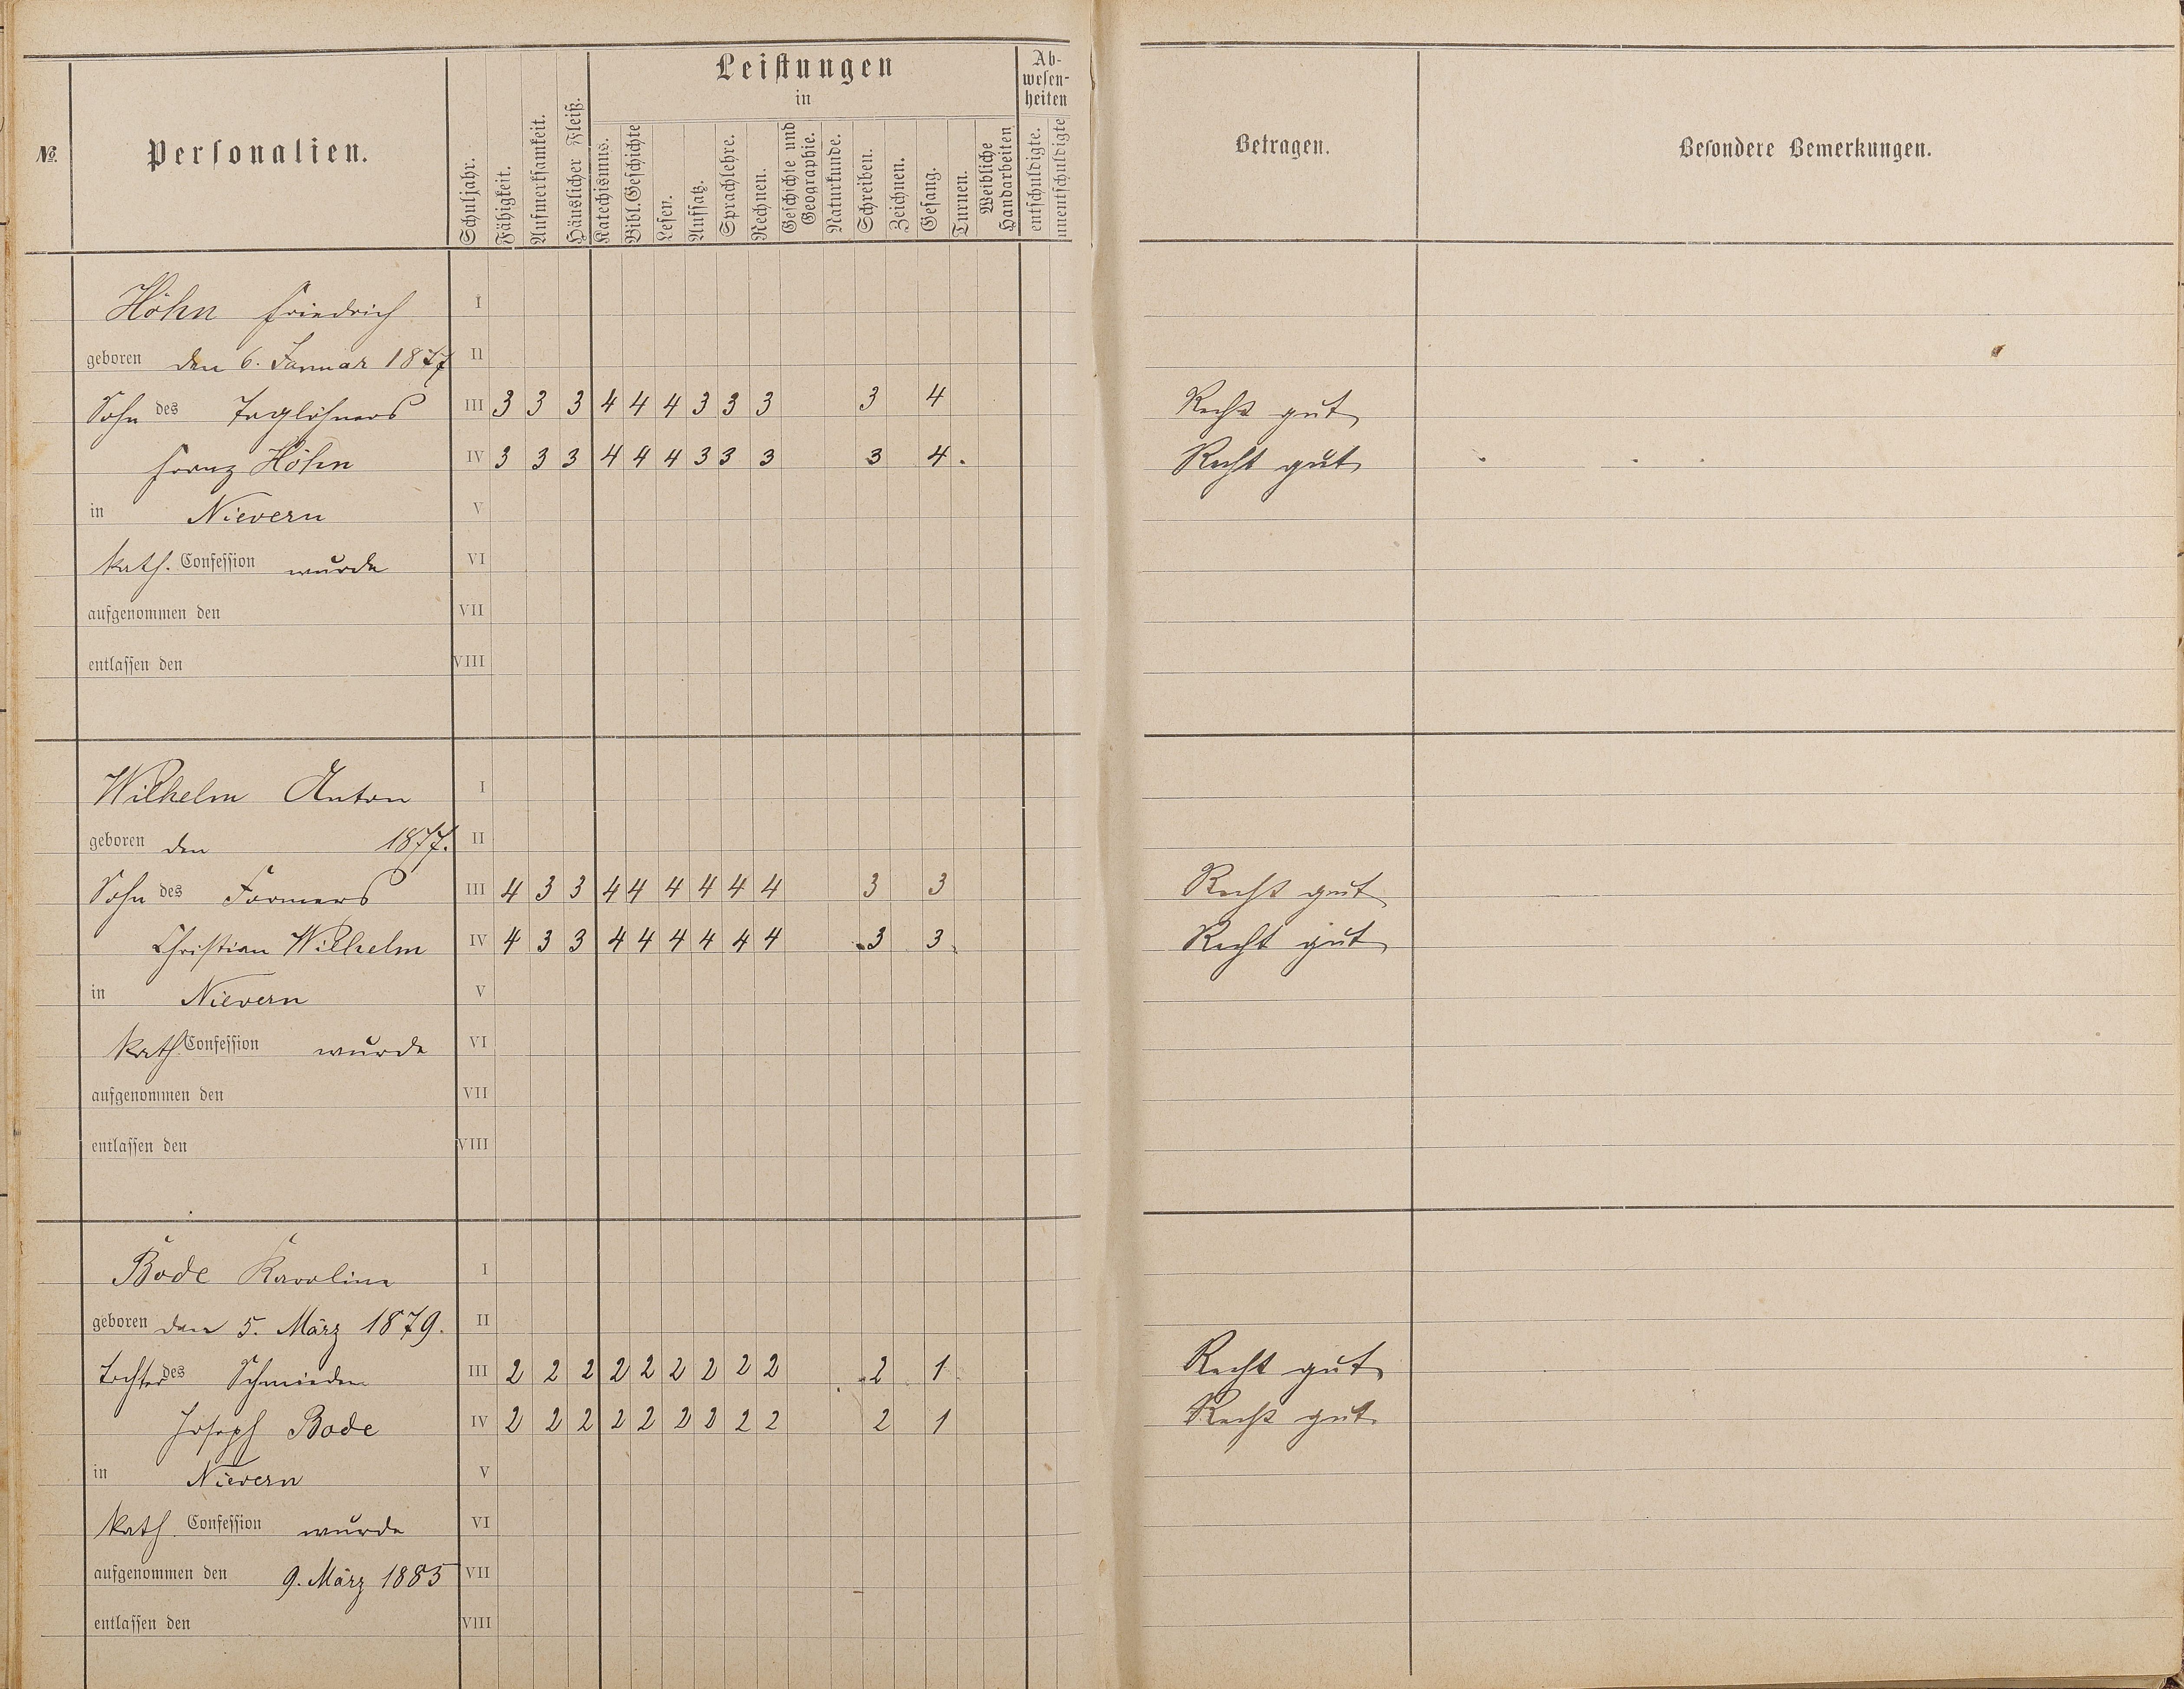 №.
Personalien.
Schuljahr.
Fähigkeit.
Aufmerksamkeit.
Häuslicher Fleiß.
Leistungen
in
Katechismus.
Bibl. Geschichte
Lesen.
Aufsatz.
Sprachlehre.
Rechnen.
Geschichte und
Geographie.
Naturkunde.
Schreiben.
Zeichnen.
Gesang.
Turnen.
Weibliche
Handarbeiten
Ab-
wesen-
heiten
entschuldigte.
unentschuldigte
Betragen.
Besondere Bemerkungen.
Höhn Friedrich I
geboren den 6. Januar 1877 II
Sohn des Taglöhners III 3 3 3 4 4 4 3 3 3 3 4 Recht gut
Franz Höhn IV 3 3 3 4 4 4 3 3 3 3 4. Recht gut
in Nievern V
kath. Confession wurde VI
aufgenommen den VII
entlassen den VIII
Wilhelm Anton I
geboren den 1877. II
Sohn des Formers III 4 3 3 4 4 4 4 4 4 3 3 Recht gut
Christian Wilhelm IV 4 3 3 4 4 4 4 4 4 3 3 Recht gut
in Nievern V
kath. Confession wurde VI
aufgenommen den VII
entlassen den VIII
Bode Karolina I
geboren den 5. März 1879. II
Tochter des Schmieden III 2 2 2 2 2 2 2 2 2 2 1 Recht gut
Joseph Bode IV 2 2 2 2 2 2 2 2 2 2 1 Recht gut
in Nievern V
kath. Confession wurde VI
aufgenommen den 9. März 1885 VII
entlassen den VIII